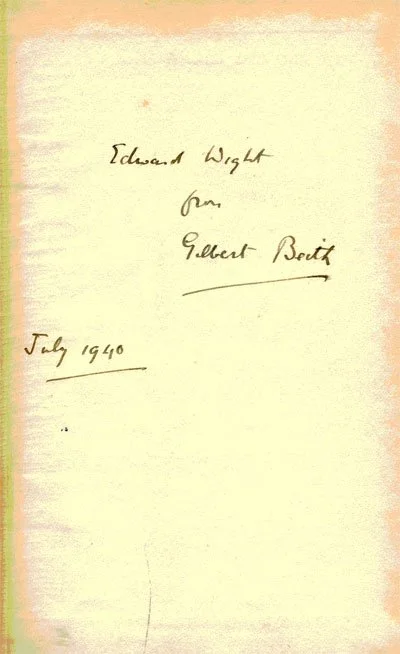 Edward Wight
from
Gilbert Beith
July 1940